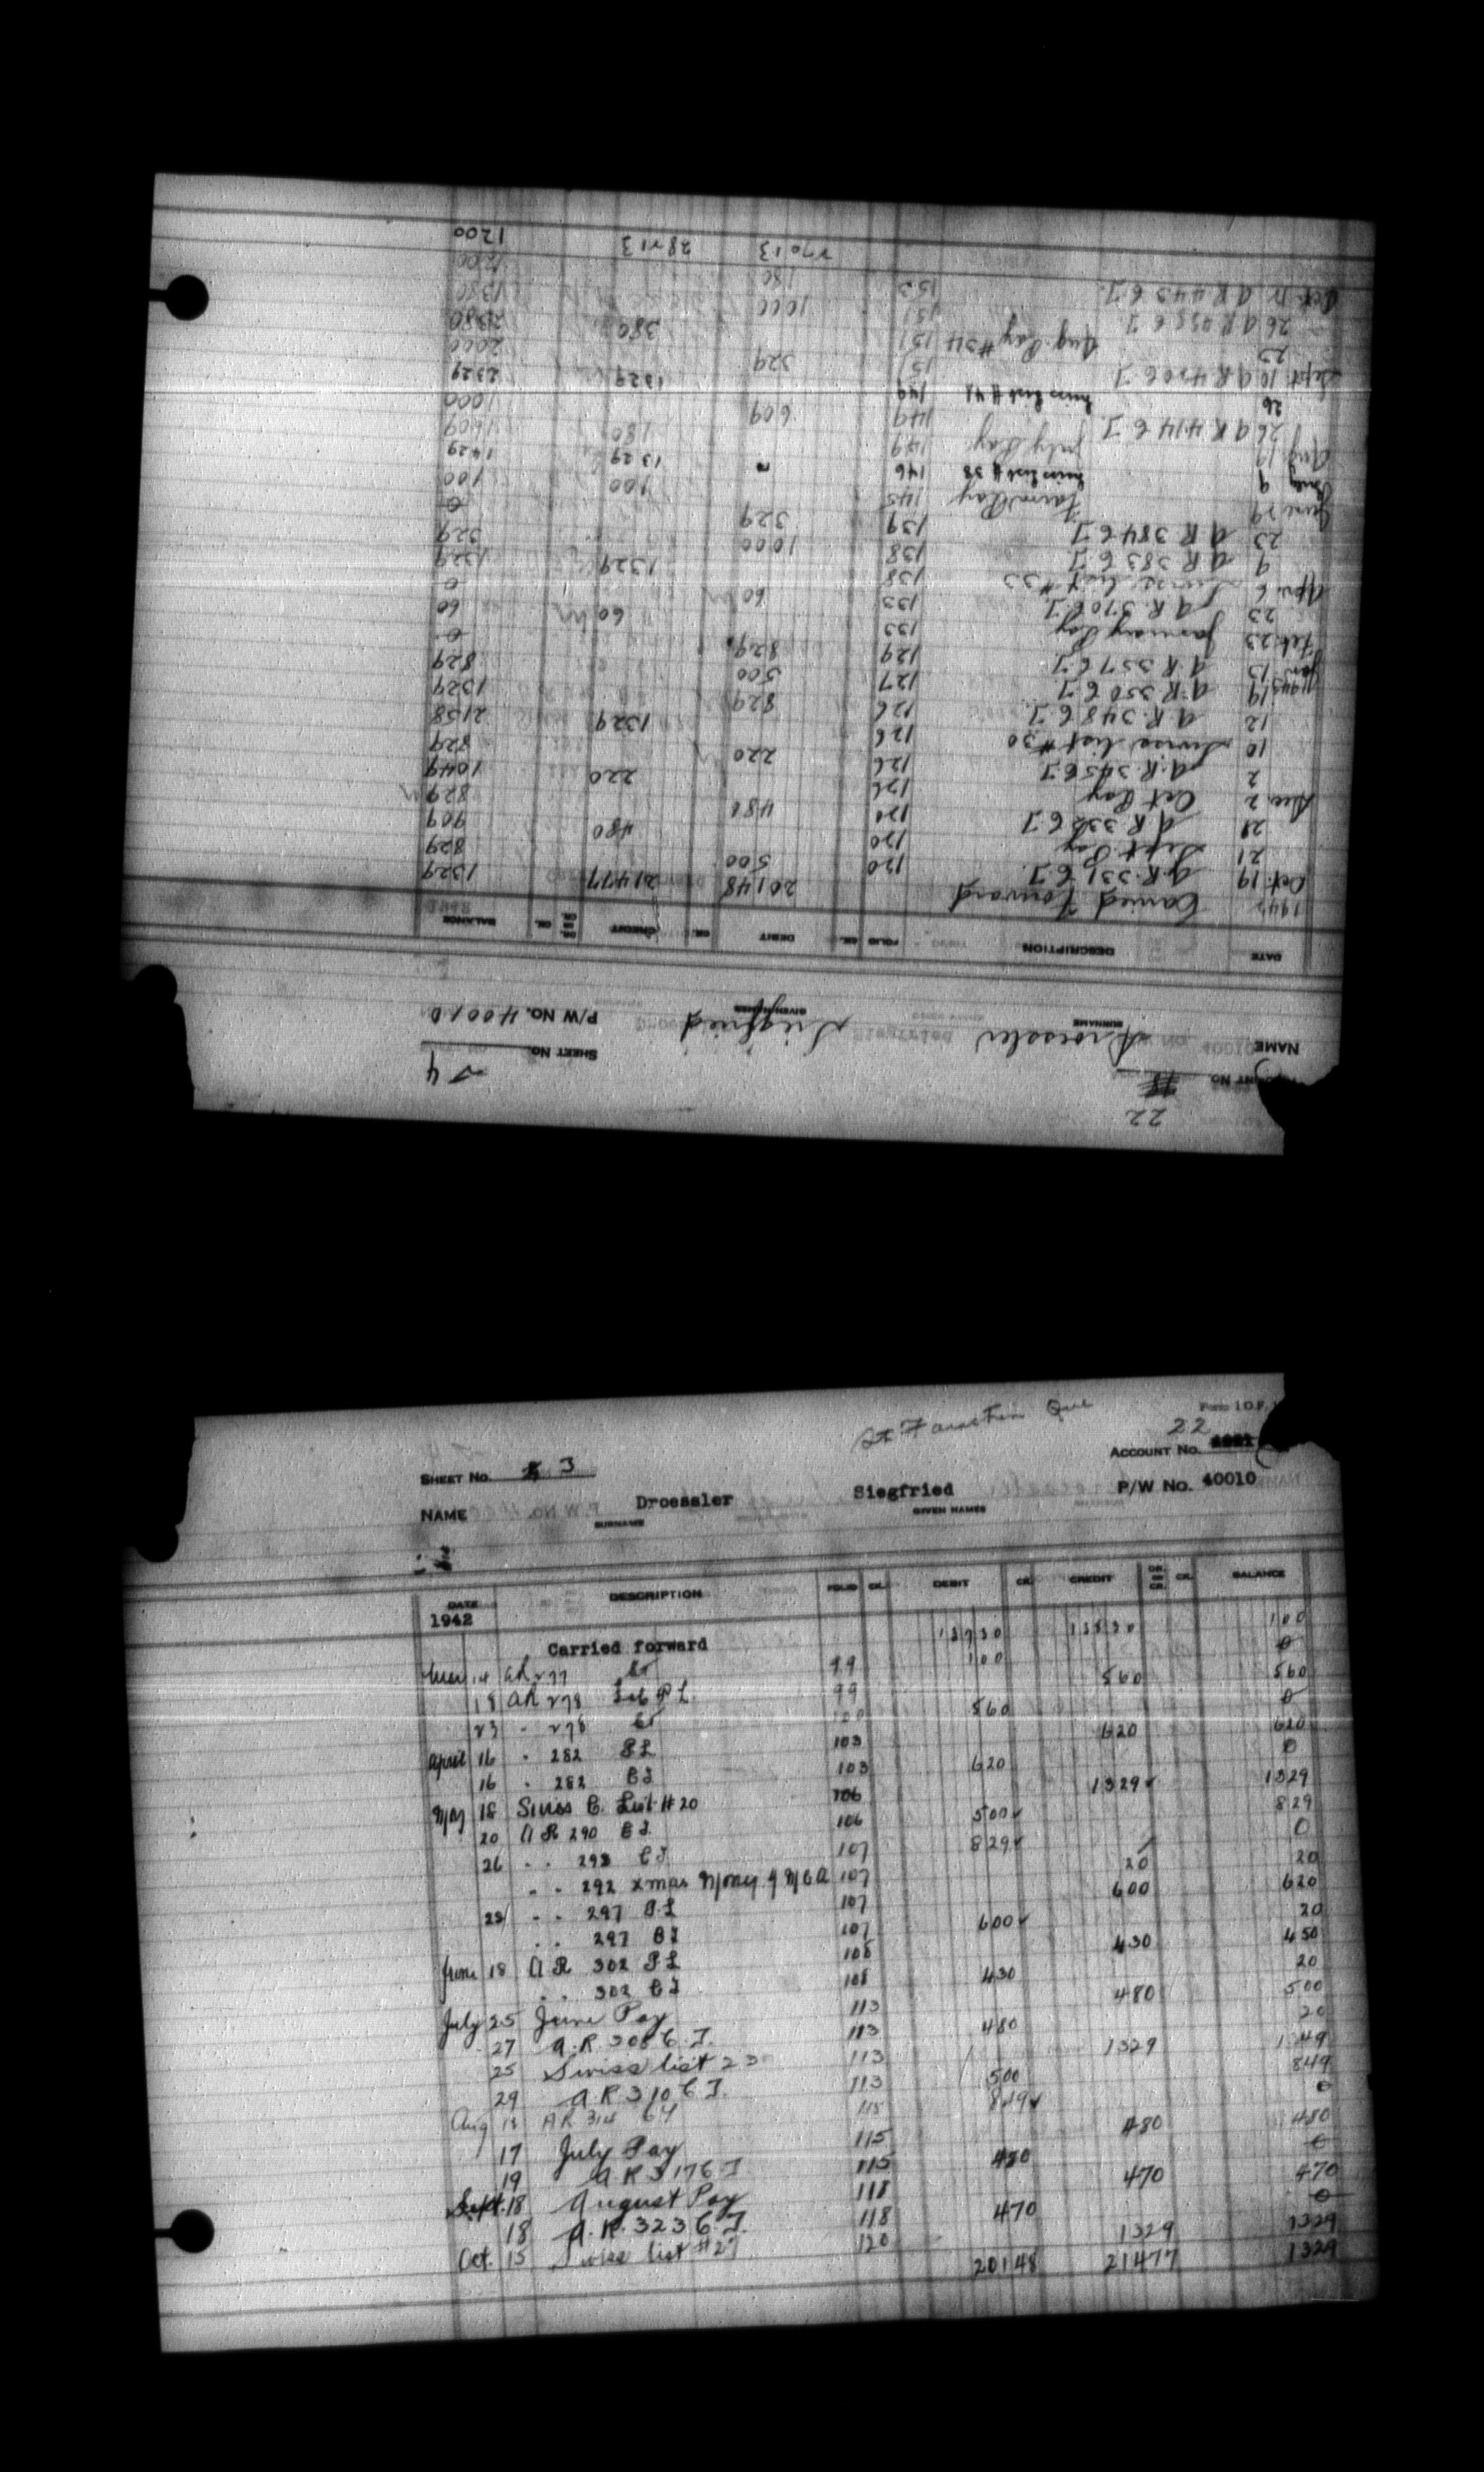 22
ACCOUNT NO.
SHEET NO. 4
NAME Droessler Siegfried P/W NO. 40010
SURNAME GIVEN NAMES
DATE DESCRIPTION FOLIO CK. DEBIT CK. CREDIT DR. OR CR. CK. BALANCE
1942 Carried Forward 20148 21477 1329
Oct. 19 A.R. 331 C.J. 120 500 829
21 Sept. Pay 120 480
21 A.R. 332 C.J. 120 829
Dec. 2 Oct Pay 126 220 1049
2 A.R. 345 C.J. 126 220 829
10 Swiss list #30 126 1329 2158
12 A.R. 348 C.J. 126 829 1329
19 A.R. 350 C.J. 127 500 829
1943 Jan 13 A.R. 357 C.J. 129 829 0
Feb. 23 January Pay 133 60 60
23 A.R. 370 C.J. 133 60 0
Apr. 6 Swiss list #33 138 1329 1329
9 A.R. 383 C.J. 138 1000 329
23 A.R. 384 C.J. 139 329 0
June 29 Farm Pay 145 100 100
July 9 Swiss list # 38 146 1329 1429
Aug 19 July Pay 149 180 1609
26 A R 414 C J. 149 609 1000
26 Swiss list # 41 149 1329 2329
Sept. 10 A R 420 C J 151 329 2000
23 Aug. Pay #34 151 380 2380
26 A R C J 151 1000 1380
Oct. A R 443 C J. 153 180 1200
27013 28213 1200
St Faustin Que
Form I.O.F.
22
SHEET NO. 3 ACCOUNT NO.
NAME Droessler Siegfried P/W NO. 40010
SURNAME GIVEN NAMES
DATE DESCRIPTION FOLIO CK. DEBIT CK. CREDIT DR. OR CR. CK. BALANCE
1942
Carried forward 100
Mar 14 AR 277 99 100 0
18 AR 278 Feb P L 99 560 560
23 " 278 560 0
April 16 " 282 P L 103 620 620
16 " 282 C J 103 620 0
May 18 Swiss C. List # 20 106 1329 1329
20 A R 290 C J. 106 500 829
26 " " 293 C J 107 829 0
" " 292 Xmas Money Y M C A 107 20 20
28 " " 297 P L 107 600 620
" " 297 C J 107 600 20
June 18 A R 302 P L 108 430 450
" " 302 C J 108 430 20
July 25 June Pay 113 480 500
27 A.R 308 C. J. 113 480 20
25 Swiss list 23 113 1329 1349
29 A R 310 C J. 113 500 849
Aug 13 AR 314 CJ 115 849 0
17 July Pay 115 480 480
19 A R 317 C J 115 480 0
Sept. 18 August Pay 118 470 470
18 A.R. 323 C. J. 118 470 0
Oct. 15 Swiss list #27 120 1329 1329
20148 21477 1329